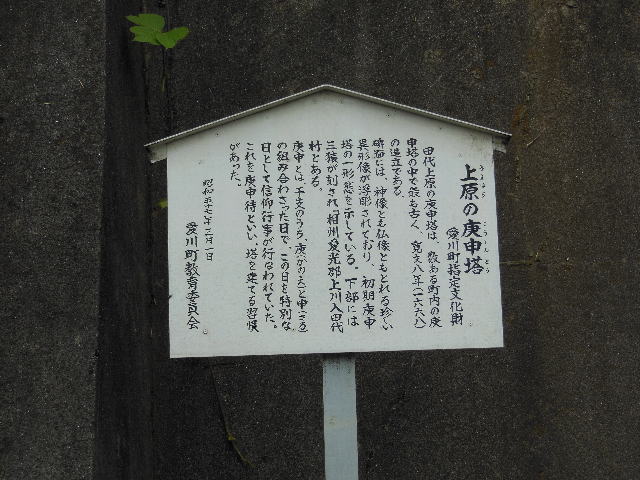 うえはら
こうしんとう
上原の庚申塔
愛川町指定文化財
田代上原の庚申塔は、数ある町内の庚
申塔の中で最も古く、寛文八年(一六六八)
の造立である。
碑面には、神像とも仏像ともとれる珍しい
異形像が浮彫されており、初期庚申
塔の一形態を示している。下部には
三猿が刻され「相州愛光郡上川入田代
村とある。
庚申とは、干支のうち、庚(かのえ)と申(さる)
の組み合わさった日で、この日を特別な
日として信仰行事が行なわれていた。
これを庚申待といい、塔を建てる習慣
があった。
昭和五十七年三月一日
愛川町教育委員会